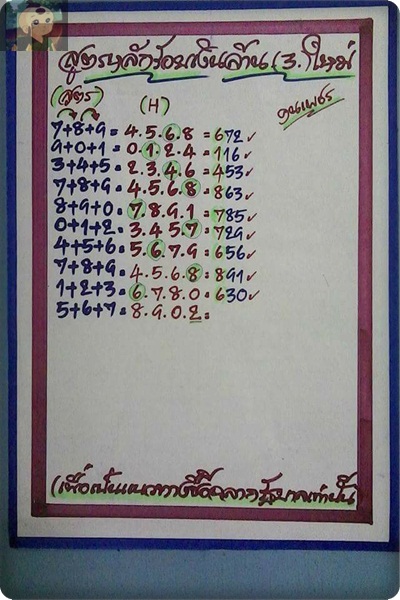 สูตรหลักร้อยเงินล้าน (3. ใหม่
(สูตร) (H) ขุนเพชร
7+8+9 = 4.5.6.8 = 672 ✓
9+0+1 = 0.1.2.4 = 116 ✓
3+4+5 = 2.3.4.6 = 453 ✓
7+8+9 = 4.5.6.8 = 863 ✓
8+9+0 = 7.8.9.1 = 785 ✓
0+1+2 = 3.4.5.7 = 729 ✓
4+5+6 = 5.6.7.9 = 656 ✓
7+8+9 = 4.5.6.8 = 891 ✓
1+2+3 = 6.7.8.0 = 630 ✓
5+6+7 = 8.9.0.2 =
(เพื่อเป็นแนวทางซื้อสลากรัฐบาลเท่านั้น